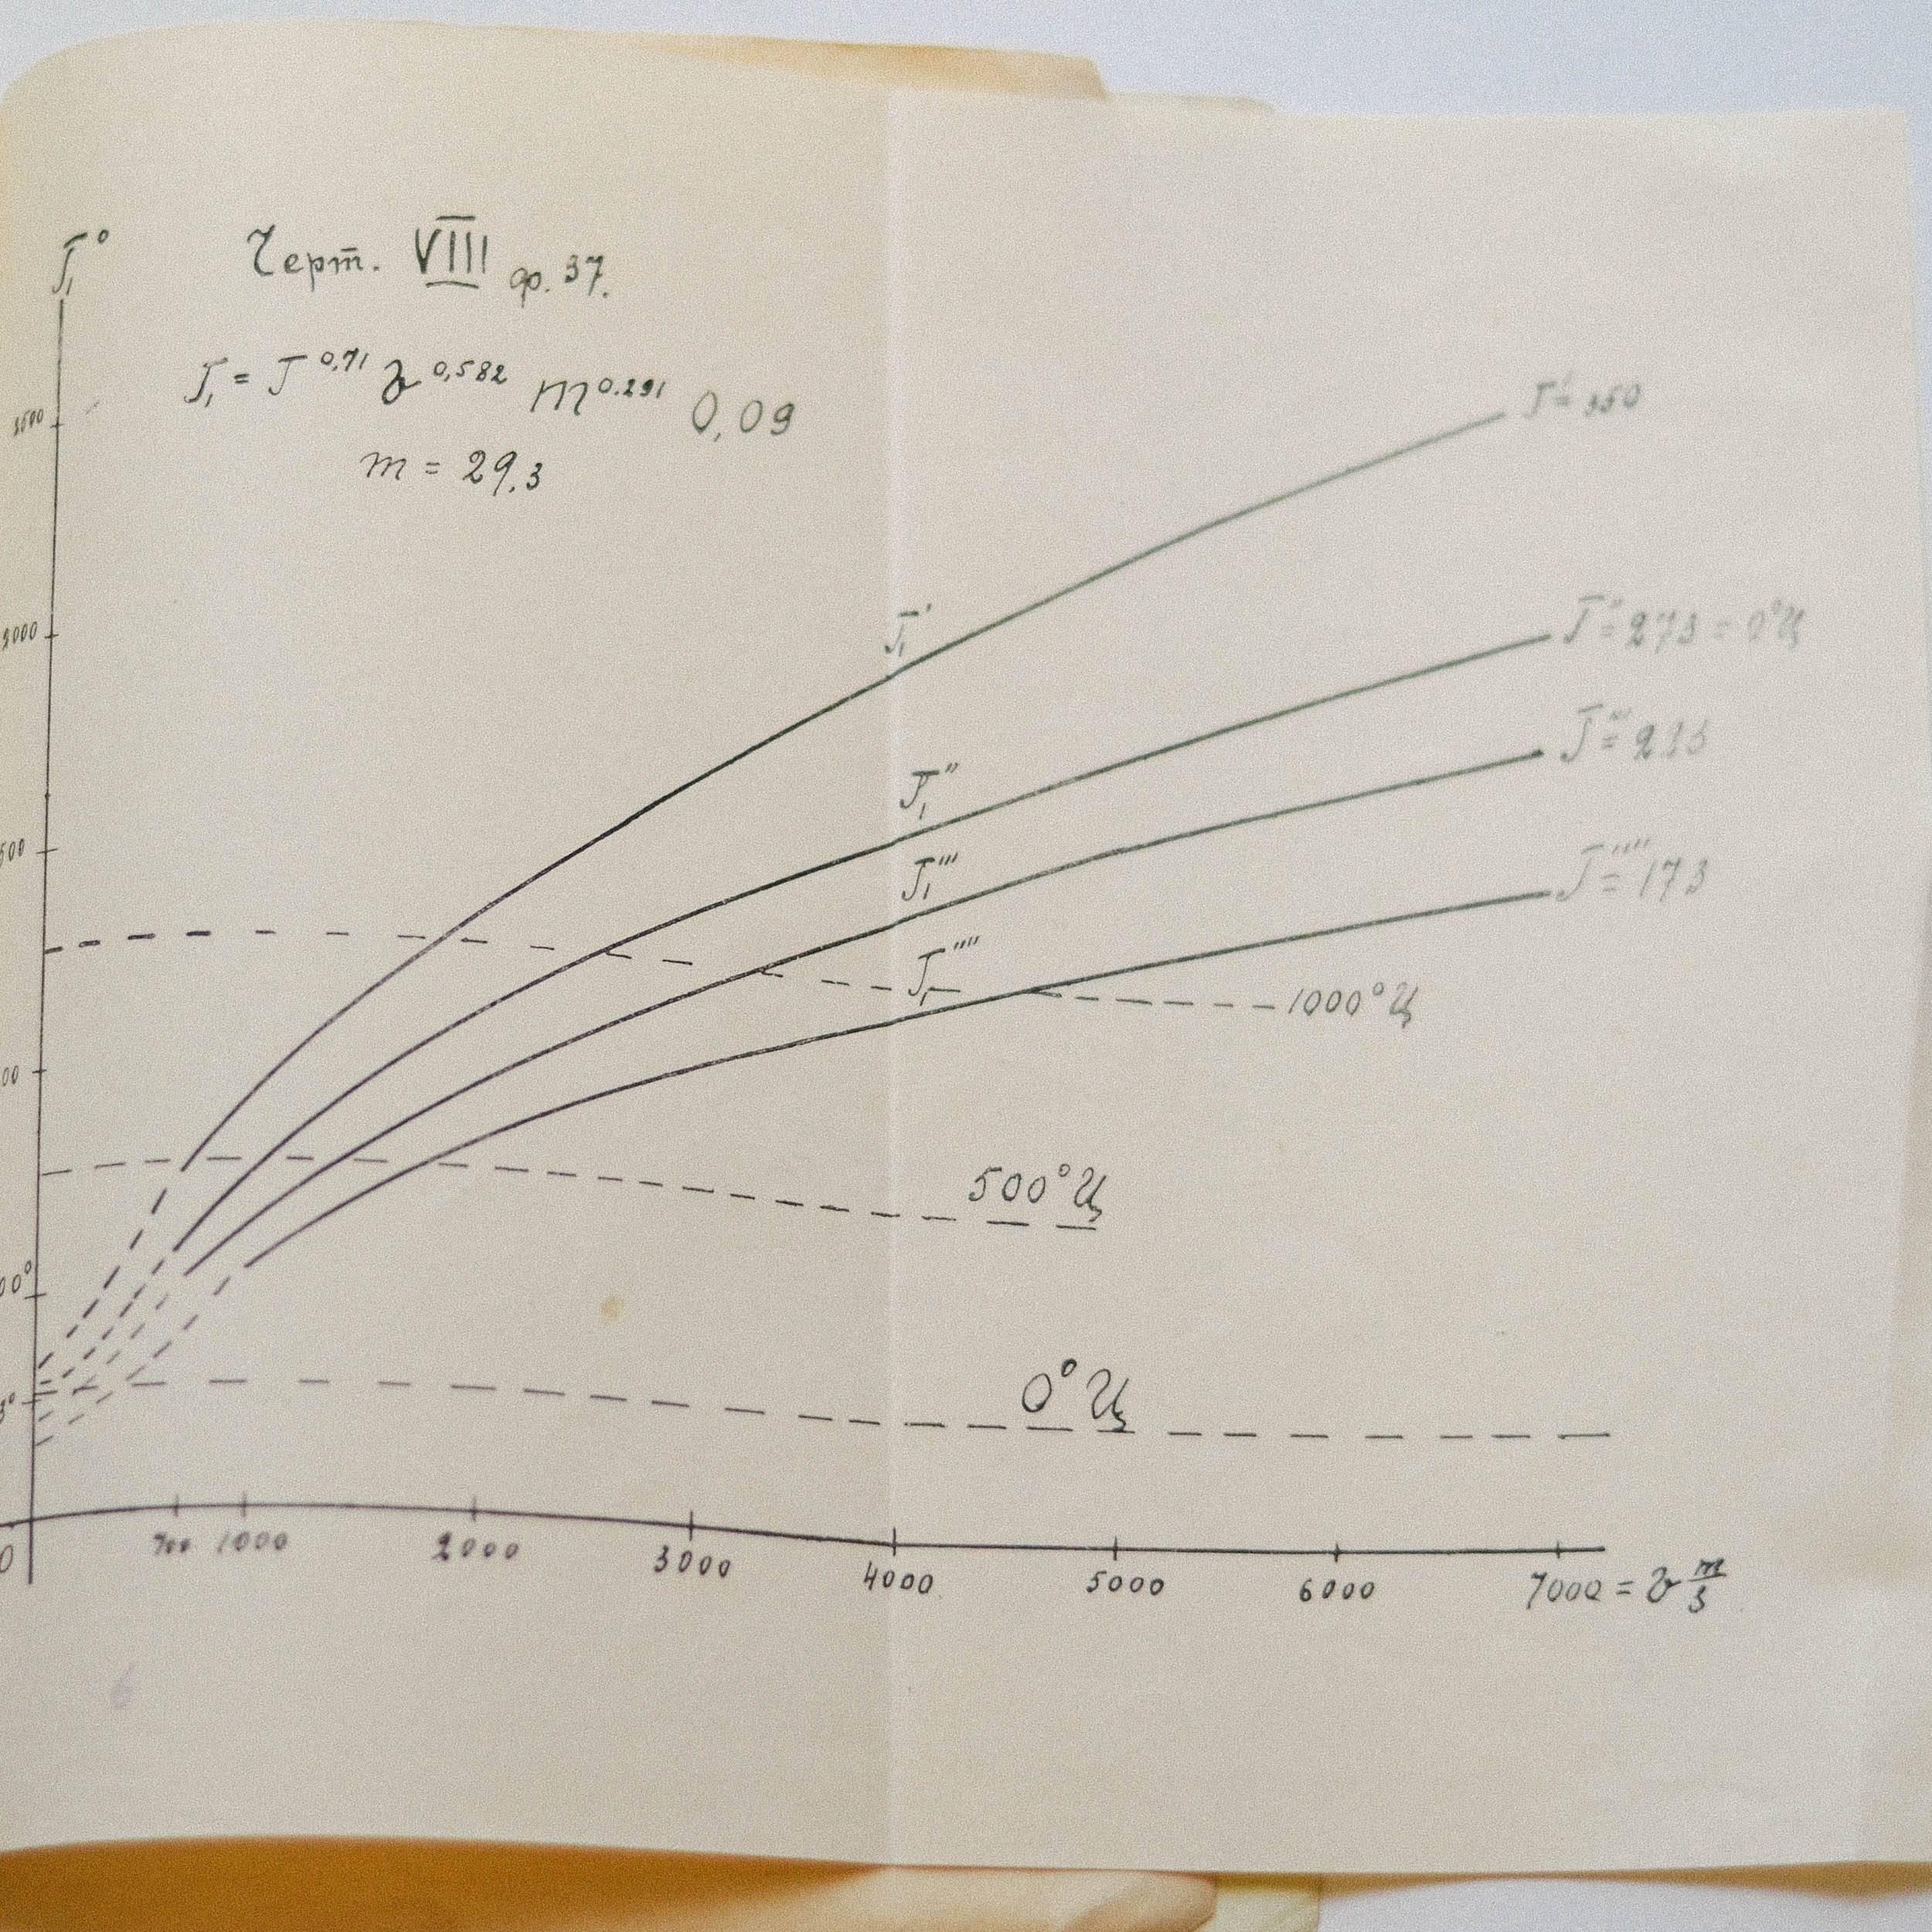 T₁°
Черт. VIII ф. 37.
T₁ = T^0,71 v^0,582 m^0.291 0,09
m = 29,3
3500
3000
500
00
00°
3°
0
T₁'
T₁''
T₁'''
T₁''''
T' = 350
T'' = 273 = 0°Ц
T''' = 223
T'''' = 173
1000°Ц
500°Ц
0°Ц
700 1000 2000 3000 4000 5000 6000 7000 = v m/s
6